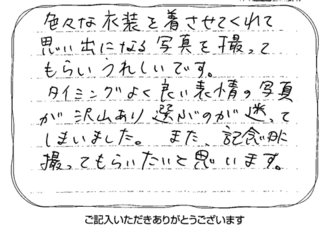 色々な衣装を着させてくれて
思い出になる写真を撮って
もらいうれしいです。
タイミングよく良い表情の写真
が沢山あり選ぶのが迷って
しまいました。また、記念日に
撮ってもらいたいと思います。
ご記入いただきありがとうございます